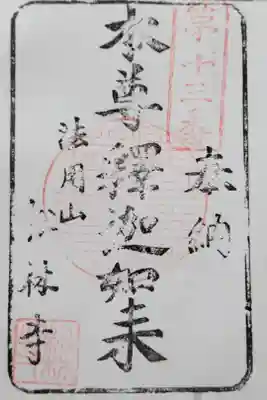 第十二番
奉納
本尊釋迦如来
法用山
林寺